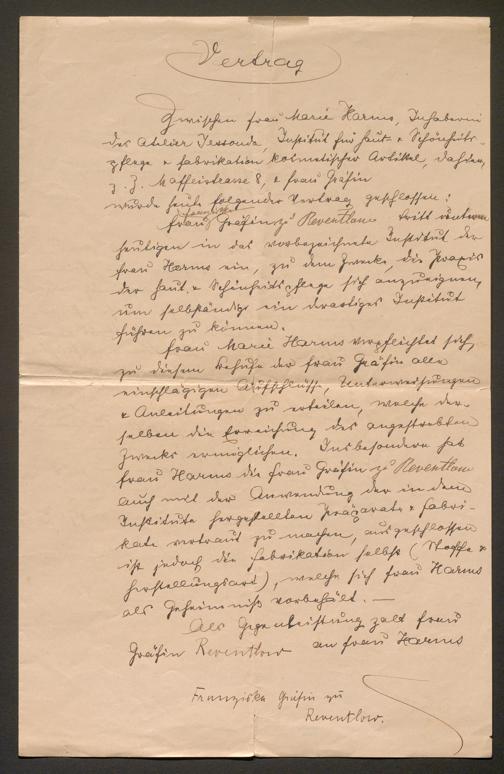 Vertrag
Zwischen Frau Marie Harms, Inhaberin
des Atelier Jessonda, Institut für Haut- & Schönheits-
pflege & Fabrikation kosmetischer Artikel, dahier,
z. Z. Maffeistrasse 8, & Frau Gräfin
wurde heute folgender Vertrag geschlossen:
Franziska
Frau Gräfin zu Reventlow tritt unterm
heutigen in das vorbezeichnete Institut der
Frau Harms ein, zu dem Zwecke, die Praxis
der Haut & Schönheitspflege sich anzueignen,
um selbständig ein derartiges Institut
führen zu können.
Frau Marie Harms verpflichtet sich,
zu diesem Behufe der Frau Gräfin alle
einschlägigen Aufschlüsse, Unterweisungen
& Anleitungen zu erteilen, welche der-
selben die Erreichung des angestrebten
Zwecks ermöglichen. Insbesondere hat
Frau Harms die Frau Gräfin zu Reventlow
auch mit der Anwendung der in dem
Institute hergestellten Präparate & Fabri-
kate vertraut zu machen, ausgeschlossen
ist jedoch die Fabrikation selbst (Stoffe &
Herstellungsart), welche sich Frau Harms
als Geheimniß vorbehält. —
Als Gegenleistung zalt Frau
Gräfin Reventlow an Frau Harms
Franziska Gräfin zu
Reventlow.